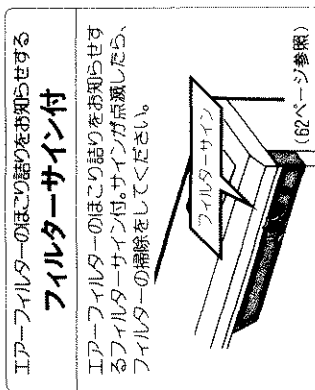 エアーフィルターのほこり詰りをお知らせする
フィルターサイン付
エアーフィルターのほこり詰りをお知らせす
るフィルターサイン付。サインが点滅したら、
フィルターの掃除をしてください。
フィルターサイン
(62ページ参照)